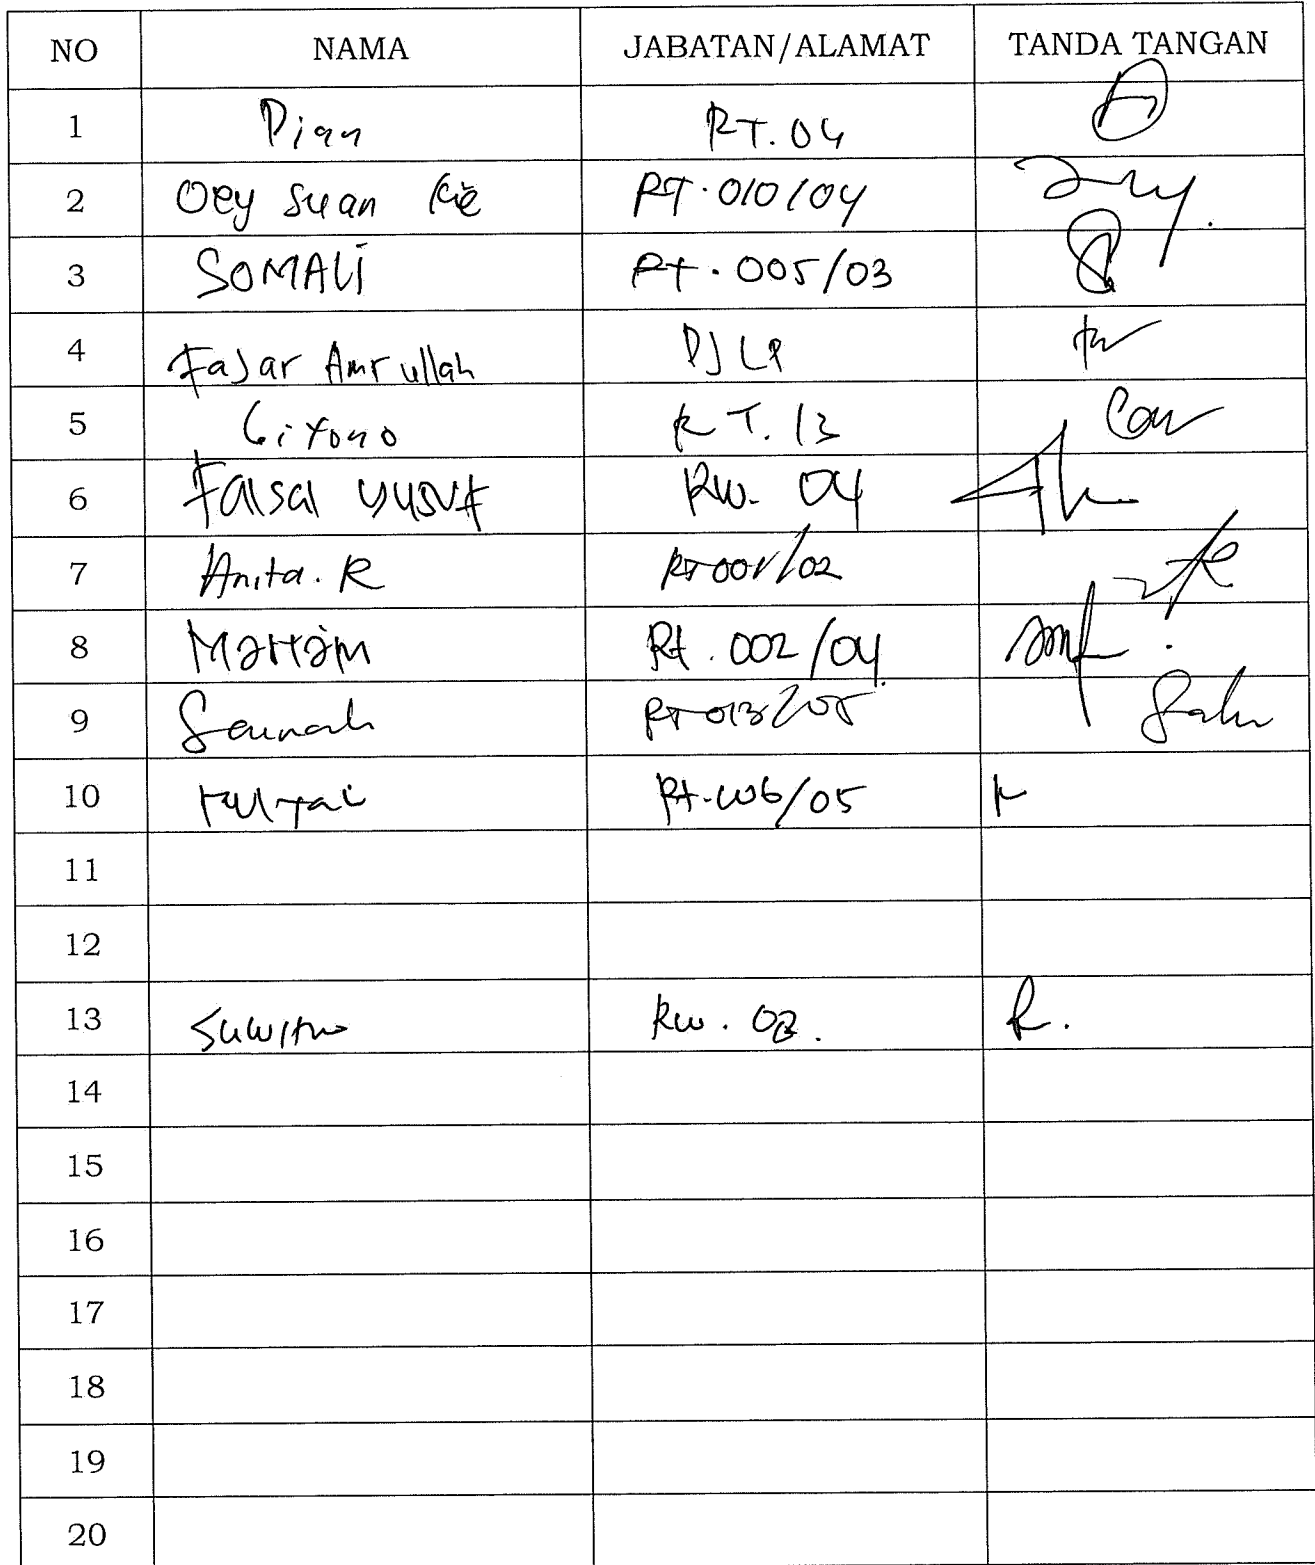 NO NAMA JABATAN/ALAMAT TANDA TANGAN
1 Dian RT.04
2 Oey Suan Kie RT.010/04
3 SOMALI RT.005/03
4 Fajar Amrullah PJLP
5 Giyono RT.13
6 Faisal Yusuf RW. 04
7 Anita.R RT001/02
8 Mariam Rt.002/04
9 Saunah RT013/05
10 Rt.006/05
11
12
13 Suwitno RW. 02.
14
15
16
17
18
19
20